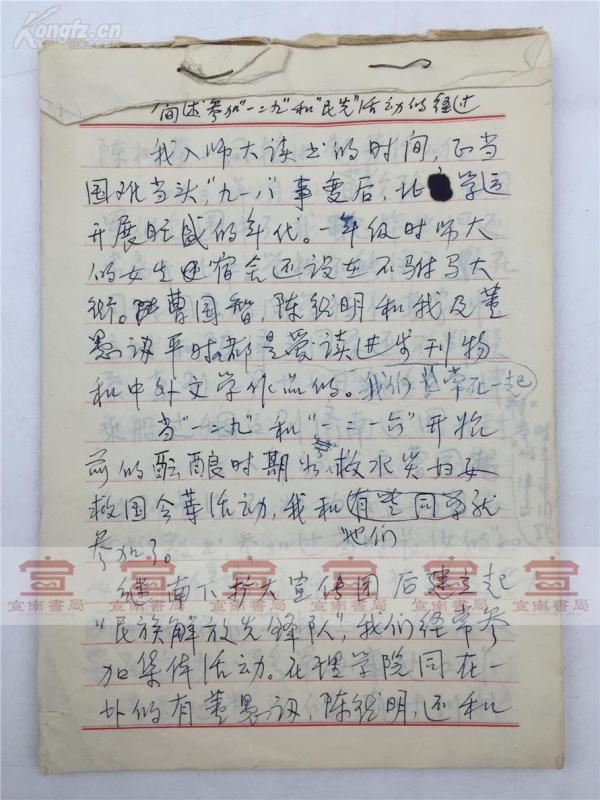 Kongfz.com
简述参加"一二·九"和"民先"活动的经过
我入师大读书的时间，正当
国难当头，"九一八"事变后，北学运
开展旺盛的年代。一年级时师大
的女生宿舍还设在石驸马大
街。曹国智，陈锐明和我及董
愚训平时都是爱读进步刊物
和中外文学作品的。我们常在一起
当"一二·九"和"一二·一六"开始
前的酝酿时期如救水灾妇女
救国会等活动，我和有些同学就
她们
参加了。
继南下扩大宣传团后建立起
"民族解放先锋队"，我们经常参
加集体活动。在理学院同在一
块的有董愚训，陈锐明，还和
宣南書局 宣南書局 宣南書局 宣南書局 宣南書局